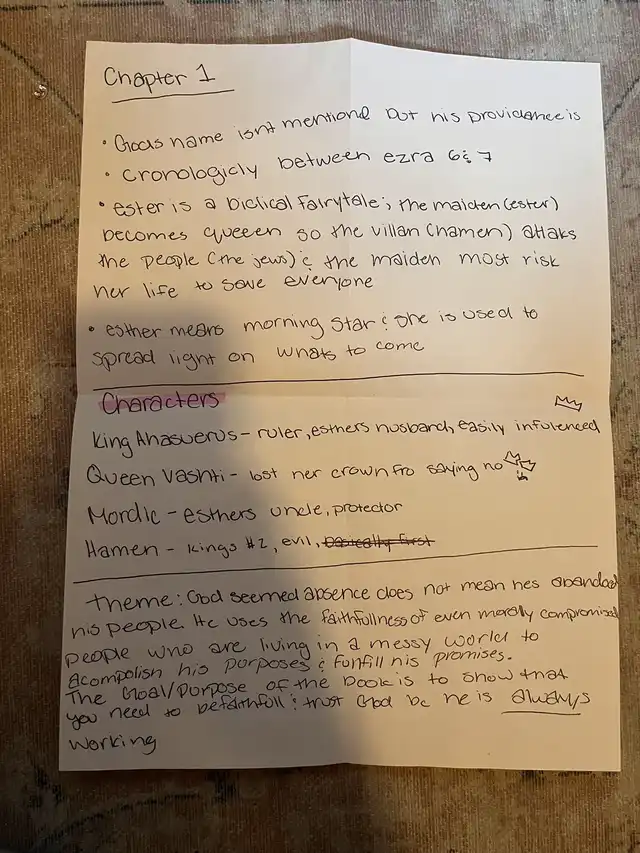 Chapter 1
• Gods name isnt mentiond but his providence is
• cronologicly between ezra 6 & 7
• ester is a biclical fairytale; the maiden (ester)
becomes queeen so the villan (hamen) attaks
the people (the jews) & the maiden most risk
her life to save everyone
• esther means morning star & she is used to
spread light on whats to come
Characters
King Ahasuerus - ruler, esthers husband, easily infulenced
Queen Vashti - lost her crown fro saying no
Mordic - esthers uncle, protector
Hamen - kings #2, evil, basically first
theme: God seemed absence does not mean hes abandoed
his people. He uses the faithfullness of even morally compromised
people who are living in a messy world to
acompolish his purposes & funfill his promises.
The Goal/purpose of the book is to show that
you need to befaithfull & trust God bc he is always
working